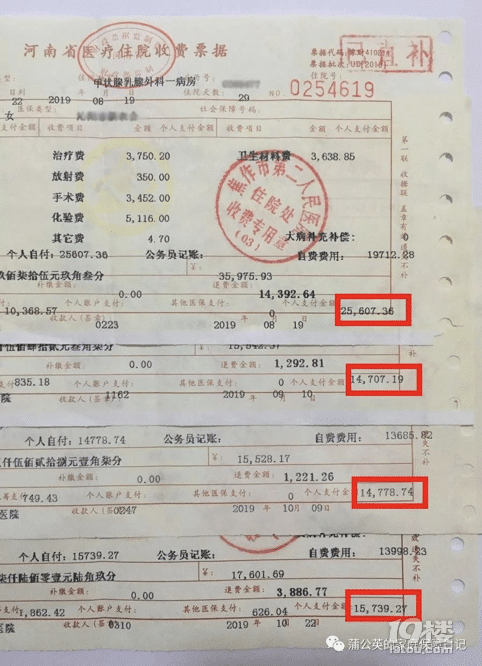 河南省医疗住院收费票据
已报补
UD[2018]
甲状腺乳腺外科一病房
住院天数: 29
住院号:
0254619
22 2019 08 19
女
医保类型:
社会保障号码:
支付金额 收费项目 金额 个人支付金额 收费项目 金额 个人支付金额
治疗费 3,750.20 卫生材料费 3,638.85
放射费 350.00
手术费 3,452.00
化验费 5,116.00
其它费 4.70
焦作市第二人民医院
住院处
收费专用章
(03)
第一联 收据联 盖章有效 遗失不补
大病补充补偿: 0
个人自付: 25607.36 公务员记账: 自费费用: 19712.28
玖佰柒拾伍元玖角叁分 ¥: 35,975.93
补缴金额: 0.00 退费金额: 14,392.64
10,368.57 个人账户支付: 其他医保支付: 0 个人支付金额: 25,607.36
收款人(签章) 0223 2019 08 19
仟伍佰肆拾贰元叁角柒分 ¥: 15,542.37
补缴金额: 0.00 退费金额: 1,292.81
835.18 个人账户支付: 其他医保支付: 0 个人支付金额: 14,707.19
医院 收款人(签章) 1162 2019 09 10
个人自付: 14778.74 公务员记账: 自费费用: 13685.82
仟伍佰贰拾捌元壹角柒分 ¥: 15,528.17
补缴金额: 0.00 退费金额: 1,221.26
749.43 个人账户支付: 其他医保支付: 0 个人支付金额: 14,778.74
医院 收款人(签章) 0247 2019 10 09
个人自付: 15739.27 公务员记账: 自费费用: 13998.23
柒仟陆佰零壹元陆角玖分 ¥: 17,601.69
补缴金额: 0.00 退费金额: 3,886.77
1,862.42 个人账户支付: 其他医保支付: 626.04 个人支付金额: 15,739.27
医院 收款人(签章) 0310 2019 10 22
19楼
19lou.com